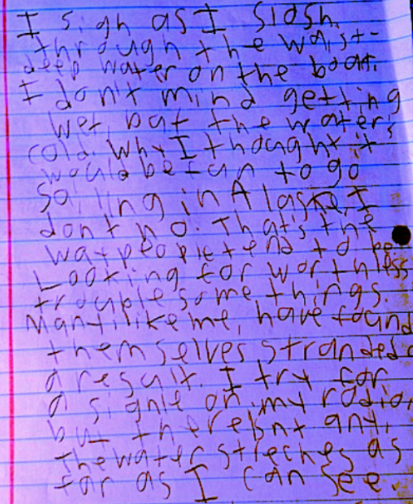 I sigh as I slosh
through the waist-
deep water on the boat.
I don't mind getting
wet, but the water's
cold. Why I thought it
would be fun to go
Sailing in Alaska, I
don't no. That's the
way people tend to be
Looking for worthless
troublesome things.
Many, like me, have found
themselves stranded
a result. I try for
a signle on my radio,
but there isnt any.
The water streches as
far as I can see.